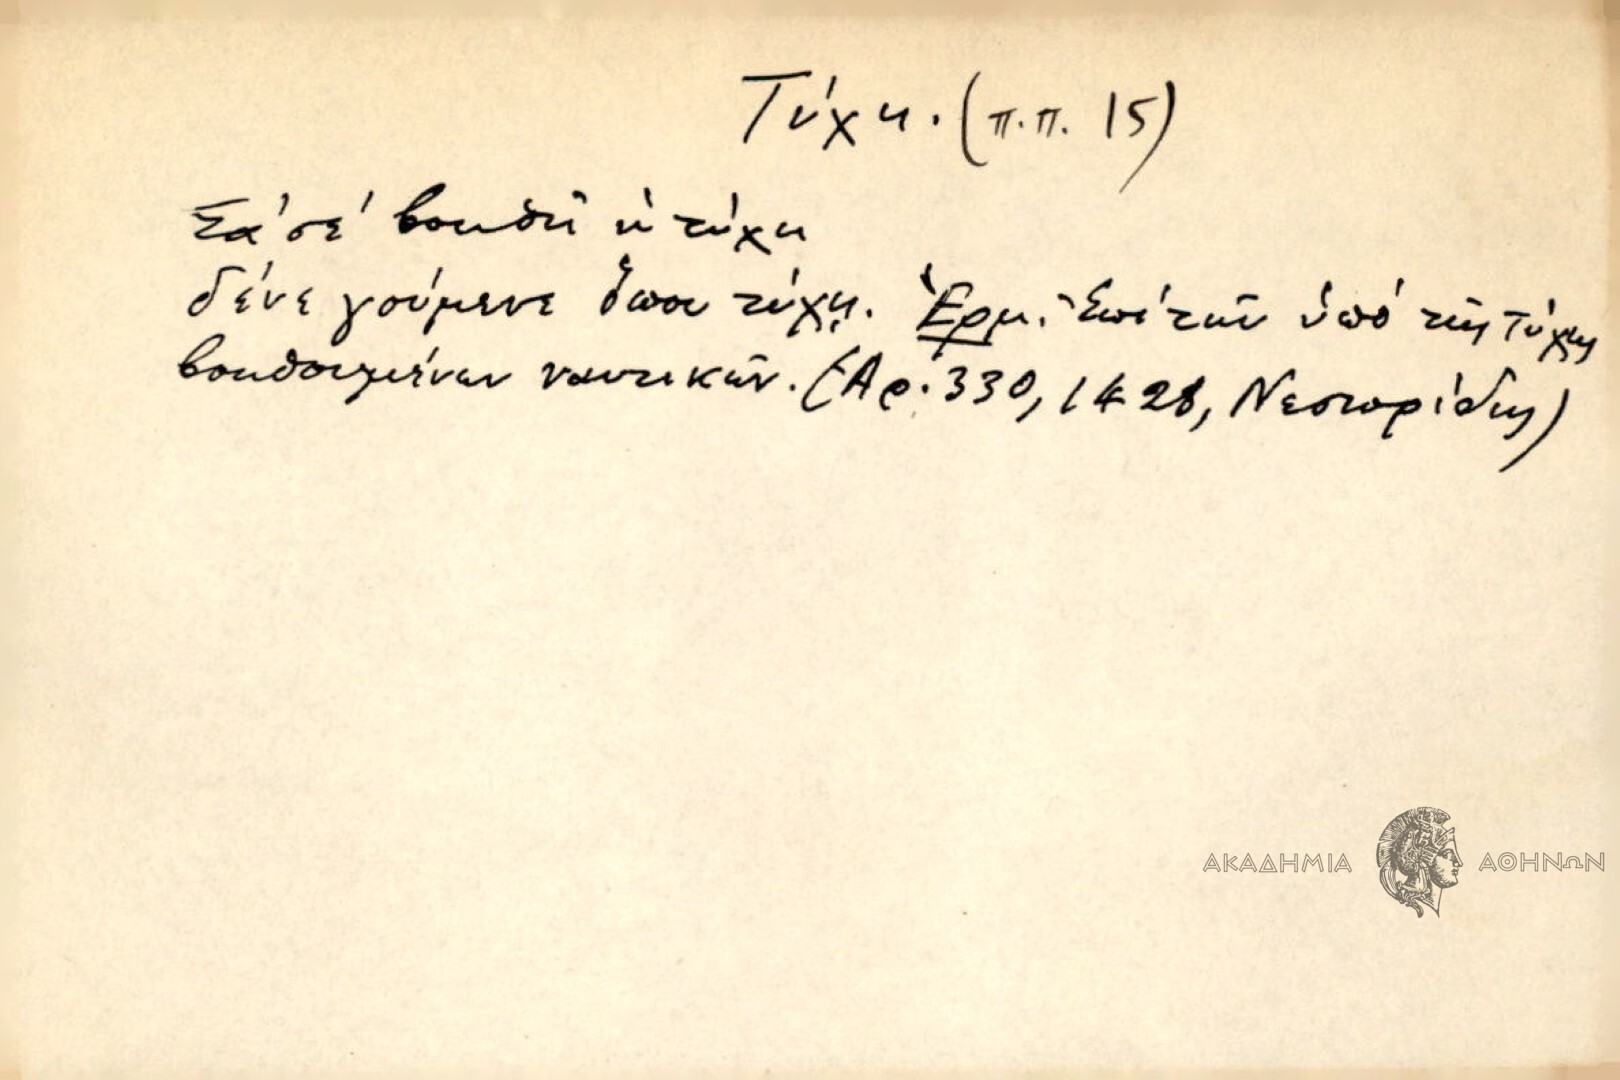 Τύχη. (π.π. 15)
Σά σέ βοηθῆ ἡ τύχη
δένε γούμενε ὅπου τύχῃ. Ἑρμ. Ἐπί τῶν ὑπό τῆς Τύχης
βοηθουμένων ναυτικῶν. (Ἀρ. 330, 1428, Νεστορίδης)
ΑΚΑΔΗΜΙΑ ΑΘΗΝΩΝ